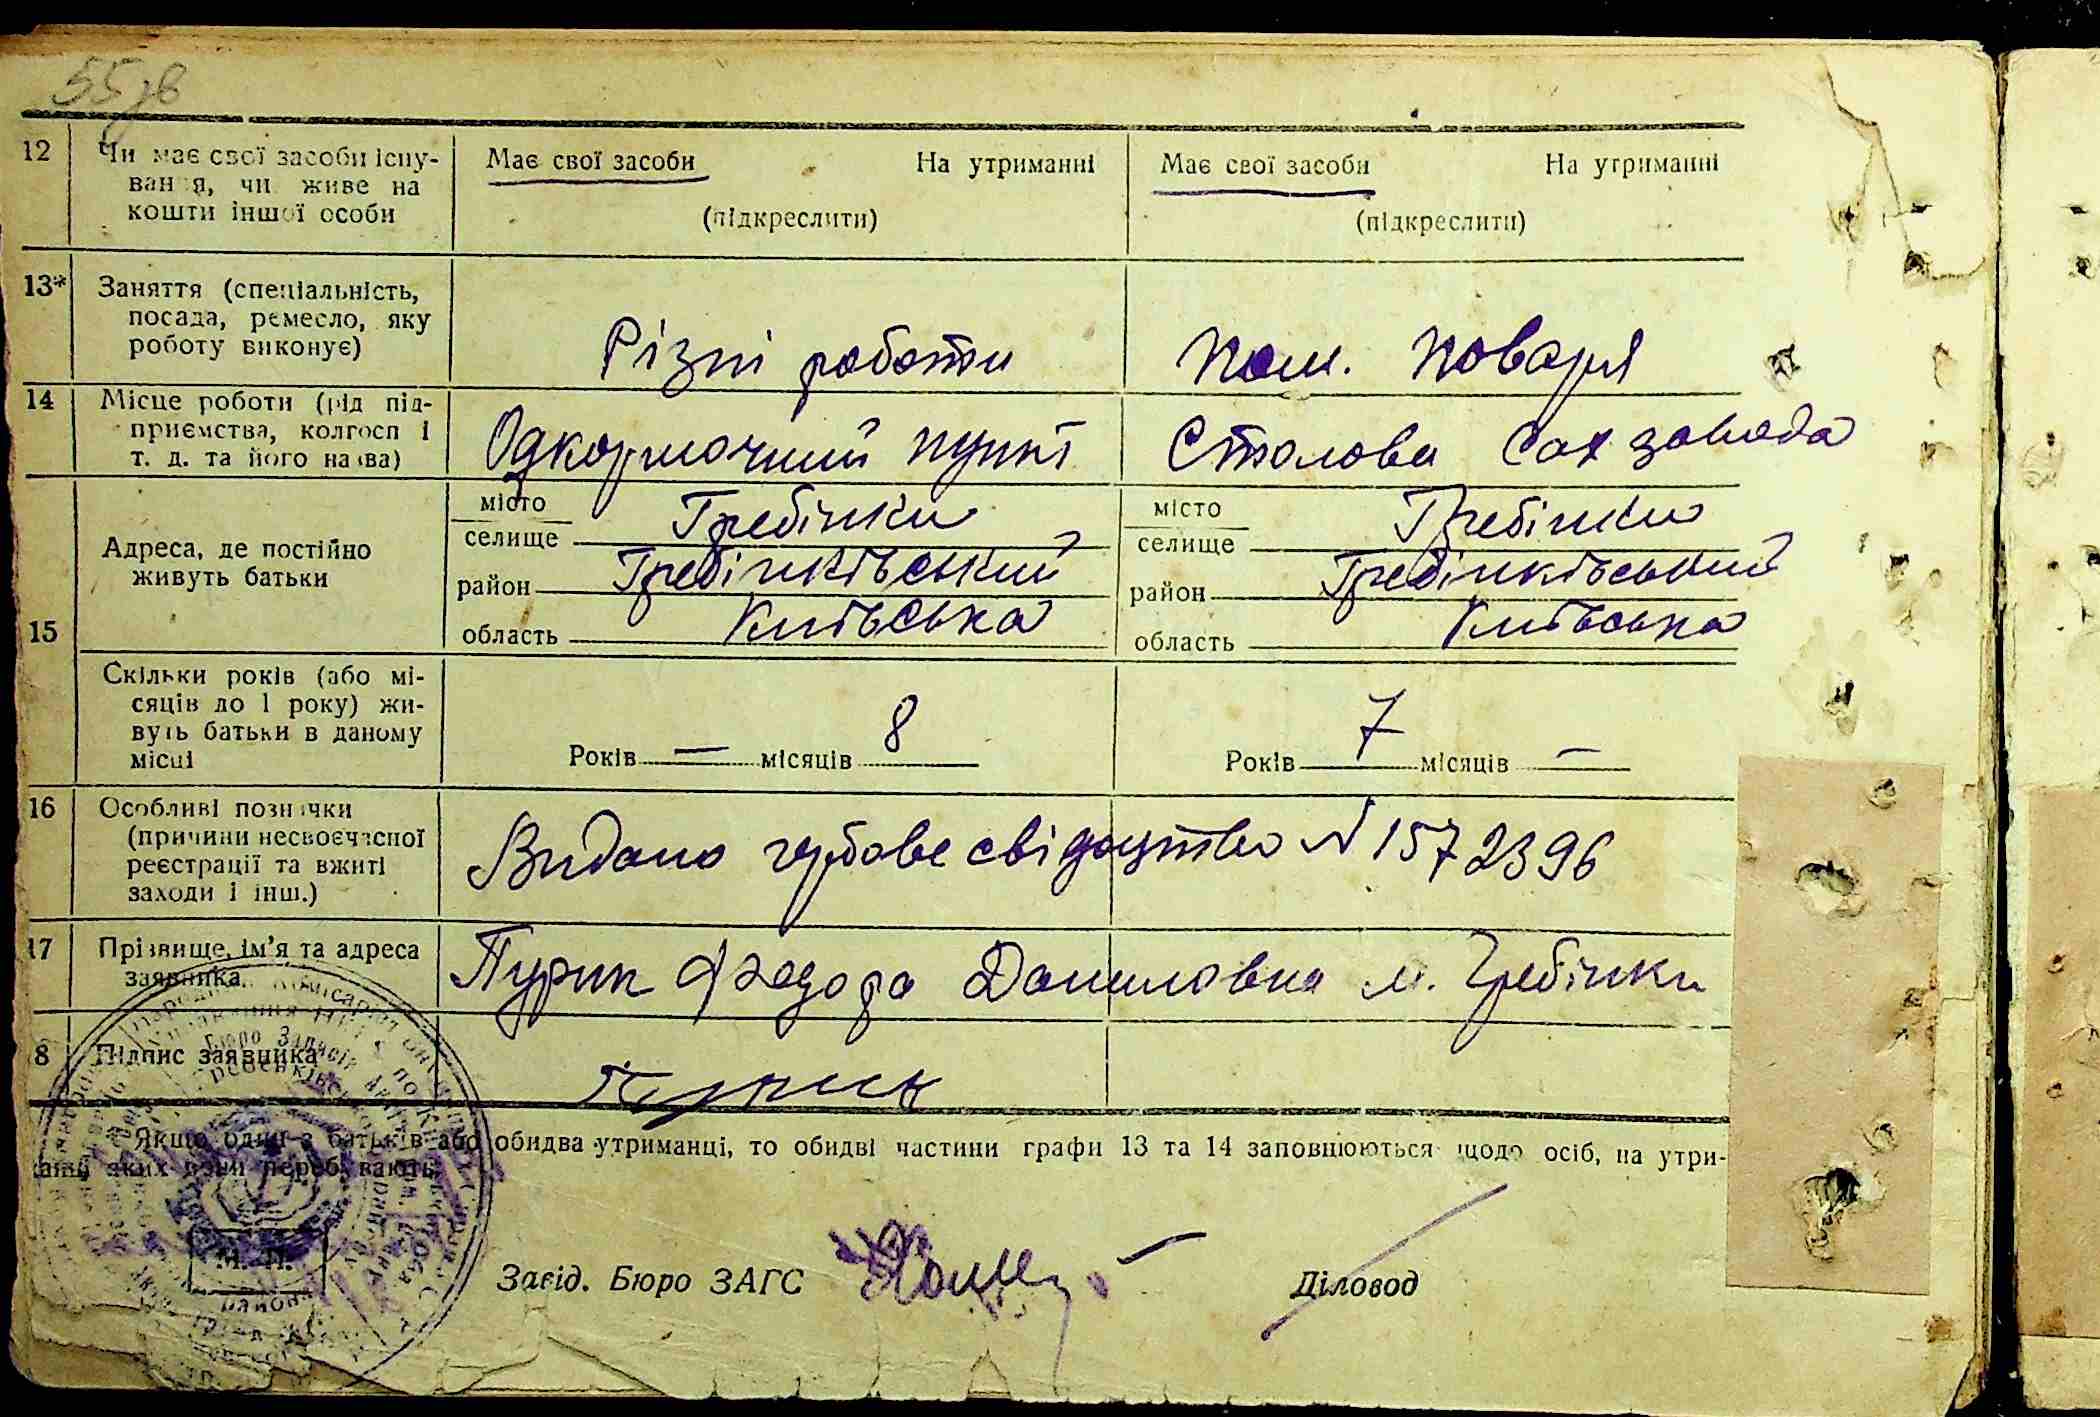 55зв
12 Чи має свої засоби існу-
вання, чи живе на
кошти іншої особи
Має свої засоби На утриманні
(підкреслити)
Має свої засоби На утриманні
(підкреслити)
13* Заняття (спеціальність,
посада, ремесло, яку
роботу виконує)
Різні роботи
пом. поваря
14 Місце роботи (рід під-
приємства, колгосп і
т. д. та його назва)
Одкормочний пункт
Столова Сахзавода
15
Адреса, де постійно
живуть батьки
місто
селище Гребінки
район Гребінківський
область Київська
місто
селище Гребінки
район Гребінківський
область Київська
Скільки років (або мі-
сяців до 1 року) жи-
вуть батьки в даному
місці
Років — місяців 8
Років 7 місяців —
16 Особливі позначки
(причини несвоєчасної
реєстрації та вжиті
заходи і інш.)
Видано гербове свідоцтво N 1572396
17 Прізвище, ім'я та адреса
заявника
Пурик Федора Даниловна м. Гребінки
8 Підпис заявника
Пурик
Якщо один з батьків або обидва утриманці, то обидві частини графи 13 та 14 заповнюються щодо осіб, на утри-
анні яких вони перебувають.
М. П.
Завід. Бюро ЗАГС
Діловод